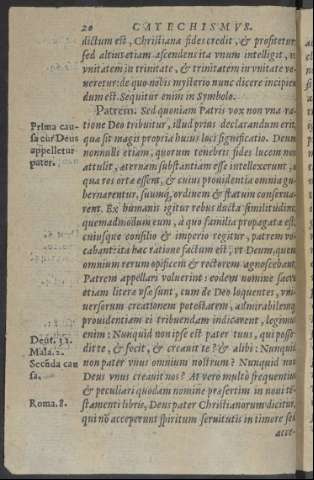 20 CATECHISMVS.
dictum est, Christiana fides credit, & profitetur
sed altius etiam ascendens ita vnum intelligit, vt
vnitatem in trinitate, & trinitatem in vnitate ve-
neretur: de quo nobis mysterio nunc dicere incipien
dum est. Sequitur enim in Symbolo.
Patrem. Sed quoniam Patris vox non vna ra-
Prima cau-
tione Deo tribuitur, illud prius declarandum erit,
sa cur Deus
qua sit magis propria huius loci significatio. Deum
appelletur
nonnulli etiam, quorum tenebris fides lucem non
pater.
attulit, æternam substantiam esse intellexerunt, a
qua res ortæ essent, & cuius prouidentia omnia gu-
bernarentur, suumq; ordinem & statum conserua-
rent. Ex humanis igitur rebus ducta similitudine
quemadmodum eum, à quo familia propagata est,
cuiusque consilio & imperio regitur, patrem vo-
cabant: ita hac ratione factum est, vt Deum, quem
omnium rerum opificem & rectorem agnoscebant,
Patrem appellari voluerint: eodem nomine sacræ
etiam literæ vsæ sunt, cum de Deo loquentes, vni-
uersorum creationem potestatem, admirabilemq;
prouidentiam ei tribuendam indicarent, legimus
enim: Nunquid non ipse est pater tuus, qui posse-
Deut. 32.
dit te, & fecit, & creauit te? & alibi: Nunquid
Mala. 2.
non pater vnus omnium nostrum? Nunquid non
Secũda cau
Deus vnus creauit nos? At vero multò frequentius
sa.
& peculiari quodam nomine præsertim in noui te-
Roma. 8.
stamenti libris, Deus pater Christianorum dicitur,
qui nõ acceperunt spiritum seruitutis in timore sed
acce-